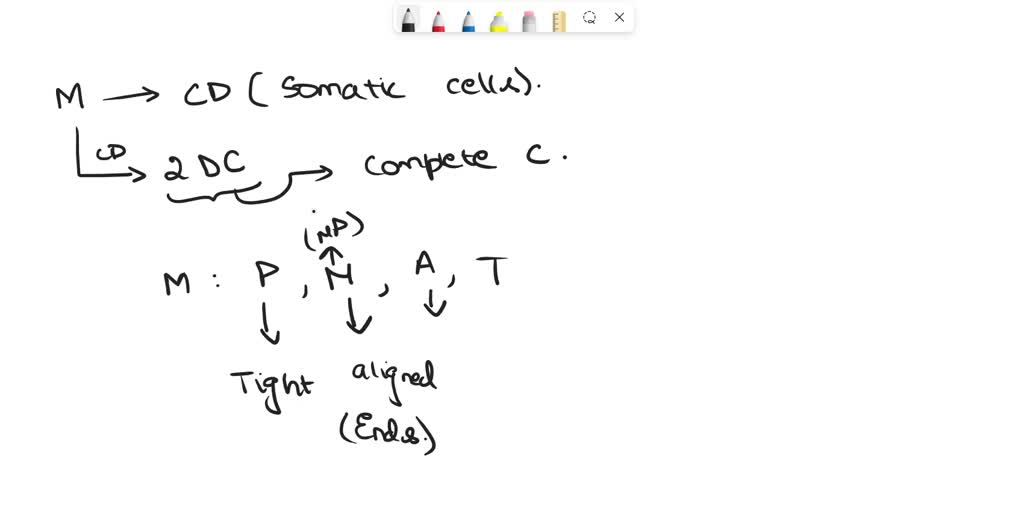 M → CD (Somatic cells).
CD → 2 DC → Compete C.
(MP)
M : P, M, A, T
Tight aligned
(Ends.)